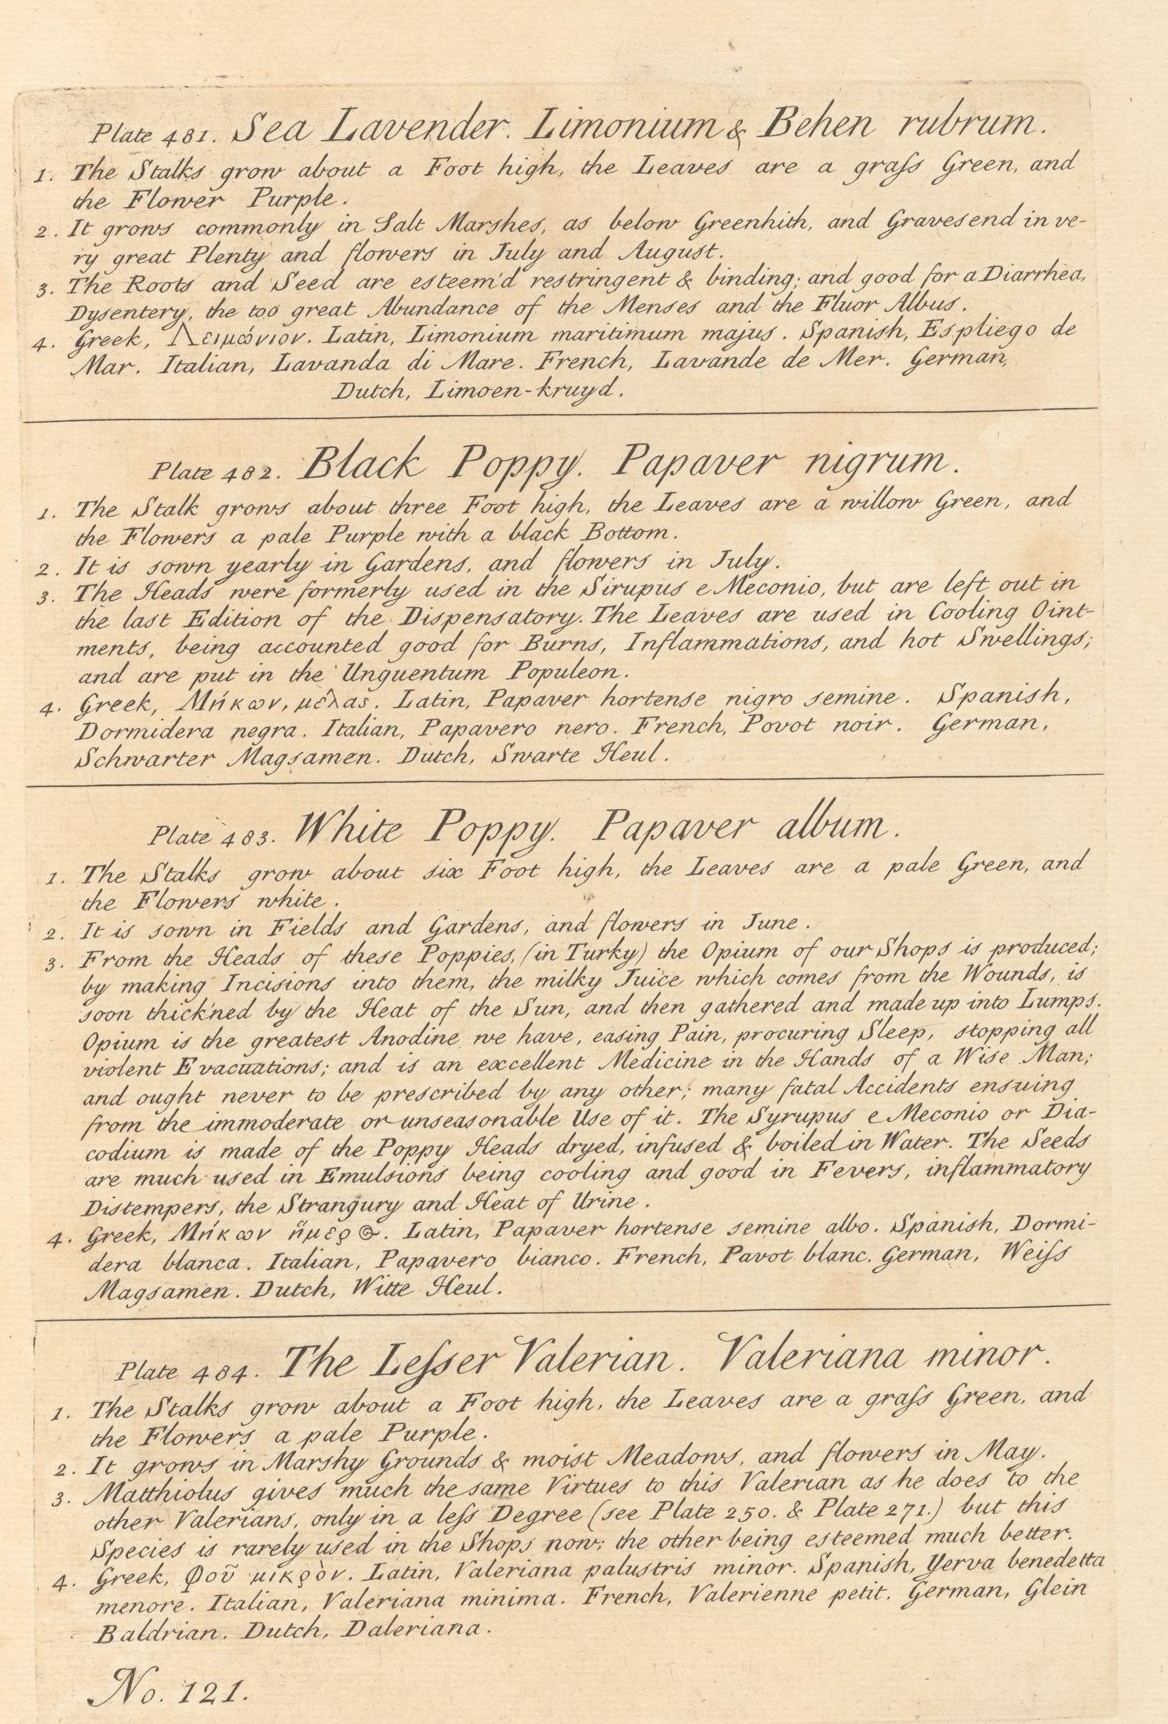 Plate 481. Sea Lavender. Limonium & Behen rubrum.
1. The Stalks grow about a Foot high, the Leaves are a graſs Green, and
the Flower Purple.
2. It grows commonly in Salt Marshes, as below Greenhith, and Gravesend in ve-
ry great Plenty and flowers in July and August.
3. The Roots and Seed are esteem'd restringent & binding; and good for a Diarrhea,
Dysentery, the too great Abundance of the Menses and the Fluor Albus.
4. Greek, Λειμώνιον. Latin, Limonium maritimum majus. Spanish, Espliego de
Mar. Italian, Lavanda di Mare. French, Lavande de Mer. German,
Dutch, Limoen-kruyd.
Plate 482. Black Poppy. Papaver nigrum.
1. The Stalk grows about three Foot high, the Leaves are a willow Green, and
the Flowers a pale Purple with a black Bottom.
2. It is sown yearly in Gardens, and flowers in July.
3. The Heads were formerly used in the Sirupus e Meconio, but are left out in
the last Edition of the Dispensatory. The Leaves are used in Cooling Oint-
ments, being accounted good for Burns, Inflammations, and hot Swellings;
and are put in the Unguentum Populeon.
4. Greek, Μήκων, μέλας. Latin, Papaver hortense nigro semine. Spanish,
Dormidera negra. Italian, Papavero nero. French, Povot noir. German,
Schwarter Magsamen. Dutch, Swarte Heul.
Plate 483. White Poppy. Papaver album.
1. The Stalks grow about six Foot high, the Leaves are a pale Green, and
the Flowers white.
2. It is sown in Fields and Gardens, and flowers in June.
3. From the Heads of these Poppies, (in Turky) the Opium of our Shops is produced;
by making Incisions into them, the milky Juice which comes from the Wounds, is
soon thick'ned by the Heat of the Sun, and then gathered and made up into Lumps.
Opium is the greatest Anodine we have, easing Pain, procuring Sleep, stopping all
violent Evacuations; and is an excellent Medicine in the Hands of a Wise Man;
and ought never to be prescribed by any other; many fatal Accidents ensuing
from the immoderate or unseasonable Use of it. The Syrupus e Meconio or Dia-
codium is made of the Poppy Heads dryed, infused & boiled in Water. The Seeds
are much used in Emulsions being cooling and good in Fevers, inflammatory
Distempers, the Strangury and Heat of Urine.
4. Greek, Μήκων ἥμερϴ. Latin, Papaver hortense semine albo. Spanish, Dormi-
dera blanca. Italian, Papavero bianco. French, Pavot blanc. German, Weiſs
Magsamen. Dutch, Witte Heul.
Plate 484. The Leſser Valerian. Valeriana minor.
1. The Stalks grow about a Foot high, the Leaves are a graſs Green, and
the Flowers a pale Purple.
2. It grows in Marshy Grounds & moist Meadows, and flowers in May.
3. Matthiolus gives much the same Virtues to this Valerian as he does to the
other Valerians, only in a leſs Degree (see Plate 250. & Plate 271.) but this
Species is rarely used in the Shops now; the other being esteemed much better.
4. Greek, Φοῦ μικρὸν. Latin, Valeriana palustris minor. Spanish, Yerva benedetta
menore. Italian, Valeriana minima. French, Valerienne petit. German, Glein
Baldrian. Dutch, Daleriana.
No. 121.